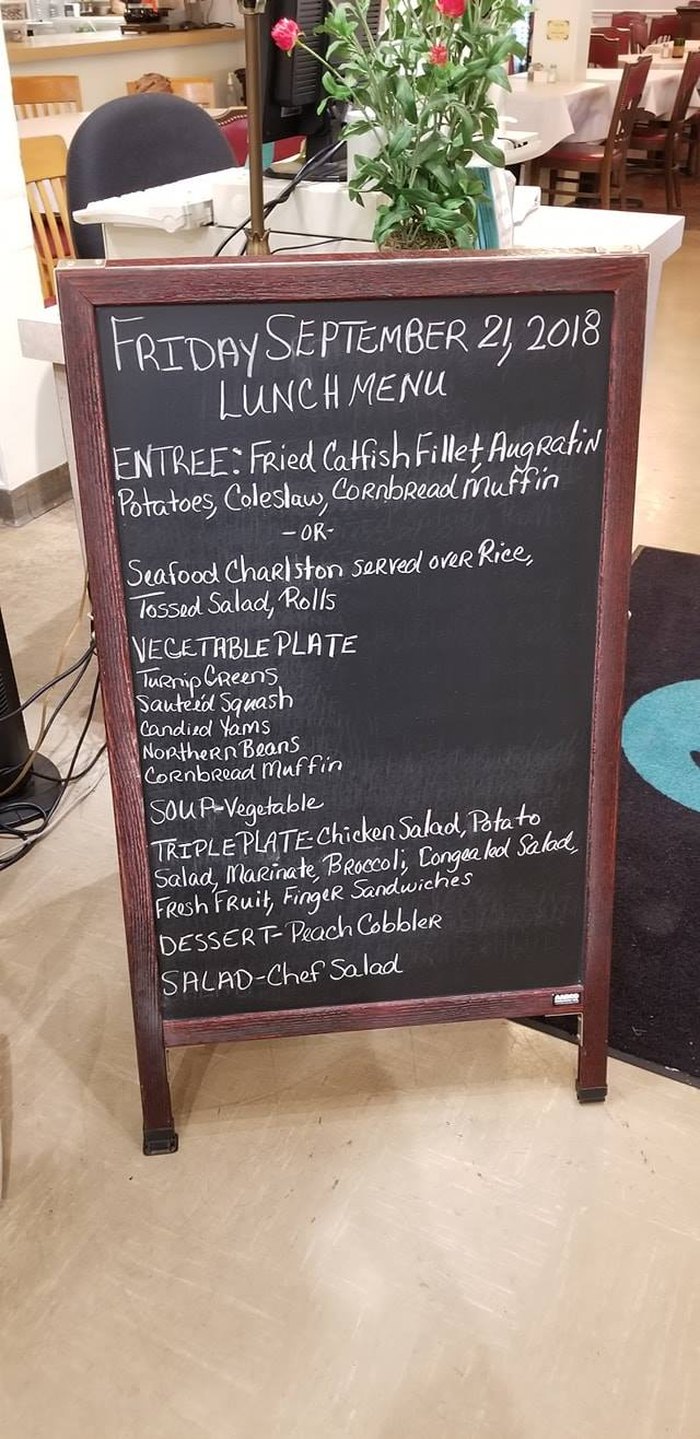 FRIDAY SEPTEMBER 21, 2018
LUNCH MENU
ENTREE: Fried Catfish Fillet, Augratin
Potatoes, Coleslaw, Cornbread Muffin
-OR-
Seafood Charlston served over Rice,
Tossed Salad, Rolls
VEGETABLE PLATE
Turnip Greens
Sauteéd Squash
Candied Yams
Northern Beans
Cornbread Muffin
SOUP-Vegetable
TRIPLE PLATE-Chicken Salad, Potato
Salad, Marinate, Broccoli, Congealed Salad,
Fresh Fruit, Finger Sandwiches
DESSERT-Peach Cobbler
SALAD-Chef Salad
AARCO